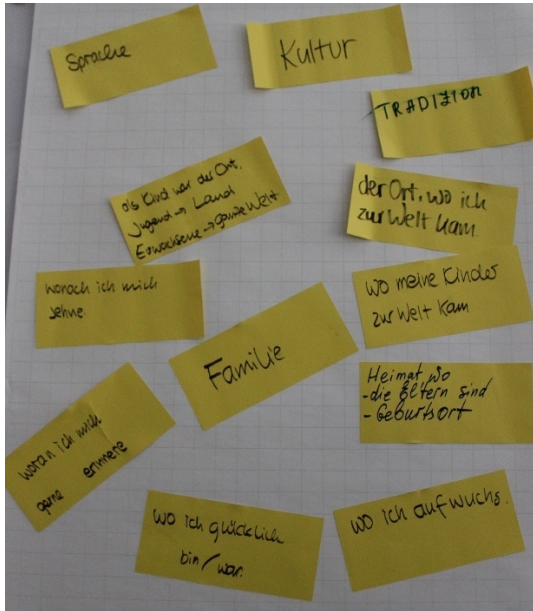 Sprache
Kultur
TRADIZION
als Kind war der Ort.
Jugend → Land
Erwachsene → ganze Welt
der Ort, wo ich
zur Welt kam.
wonach ich mich
sehne.
wo meine Kinder
zur Welt kam
Familie
Heimat wo
- die Eltern sind
- Geburtsort
woran ich mich
gerne erinnere
wo ich glücklich
bin / war.
wo ich aufwuchs.